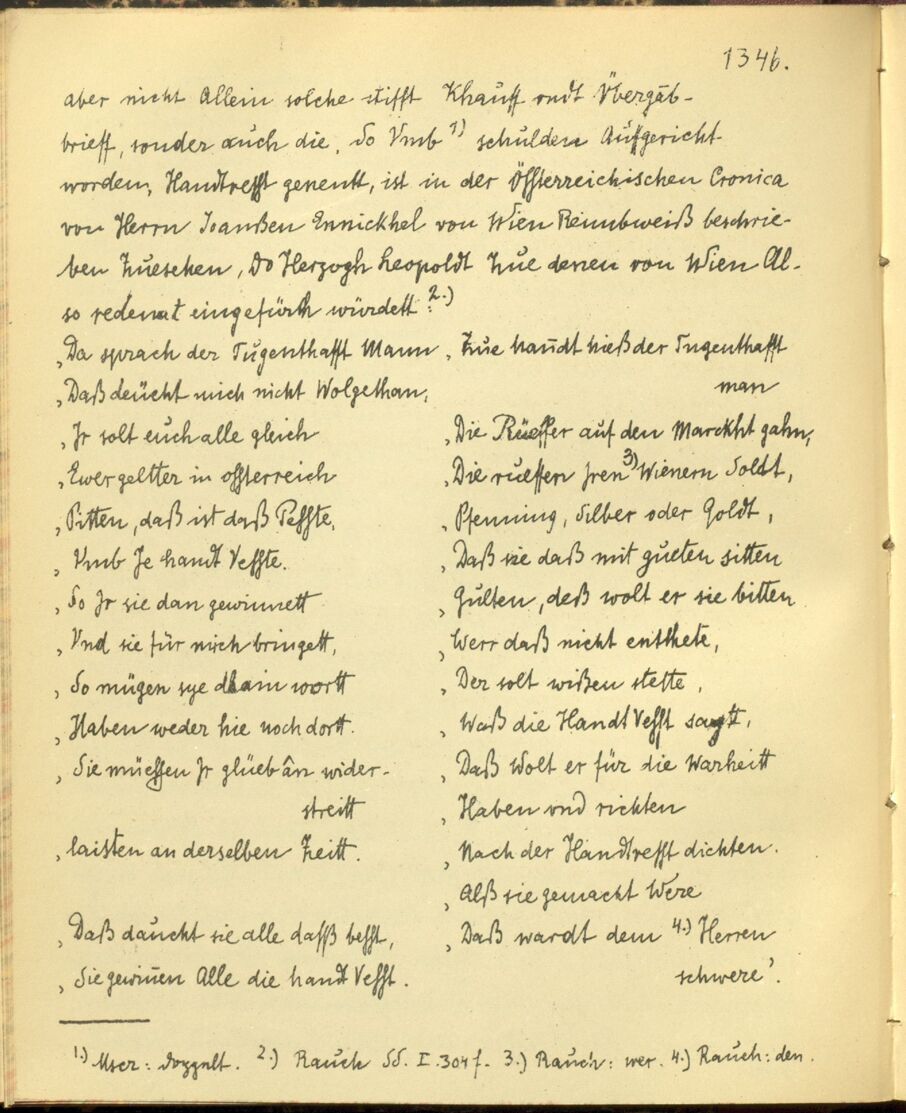 1346.
aber nicht Allein solche stifft Khauff vndt Übergab-
brieff, sonder auch die, So Vmb 1) schulden Aufgericht
worden, Handtvesst genentt, ist in der Össterreichischen Cronica
von Herrn Joanßen Ennickhel von Wien Reimbweiß beschrie-
ben Zuesehen, Do Herzogh Leopoldt Zue denen von Wien Al-
so redennt eingefürth würdett: 2.)
„Da sprach der Tugenthafft Mann
„Daß deücht mich nicht Wolgethan,
„Jr solt euch alle gleich
„Ewer geltter in össterreich
„Pitten, daß ist daß Pesste,
„Vmb Je handt Vesste.
„So Jr sie dan gewinnett
„Vnd sie für mich bringett,
„So mügen sye dhain wortt
„Haben weder hie noch dortt.
„Sie müessen Jr glüeb ân wider-
streitt
„laisten an derselben Zeitt.
„Daß daucht sie alle dasß besst,
„Sie gewinen Alle die handt Vesst.
„Zue handt hieß der Tugenthafft
man
„Die Rüeffer auf den Marckht gahn,
„Die rueffen jren 3) Wienern Soldt,
„Pfenning, Silber oder Goldt,
„Daß sie daß mit gueten sitten
„Gulten, deß wolt er sie bitten
„Werr daß nicht entthete,
„Der solt wißen stette,
„Waß die Handt Vesst sagtt,
„Daß Wolt er für die Warheitt
„Haben vnd richten
„Nach der Handtvesst dichten.
„Alß sie gemacht Were
„Daß wardt dem 4.) Herren
schwere'.
1.) Mscr: doppelt. 2.) Rauch SS. I. 304 f. 3.) Rauch: wer. 4.) Rauch: den.